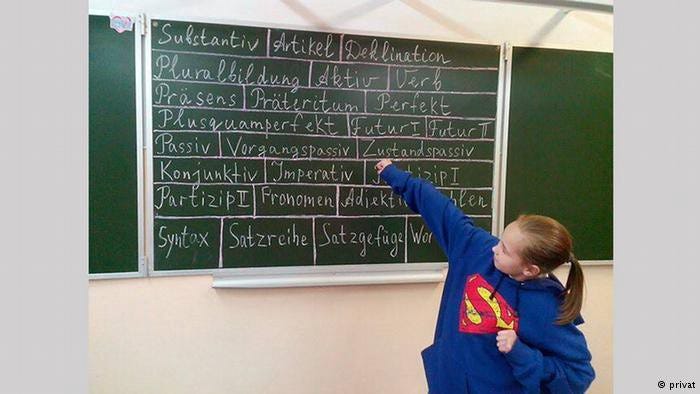 Substantiv Artikel Deklination
Pluralbildung Aktiv Verb
Präsens Präteritum Perfekt
Plusquamperfekt Futur I Futur II
Passiv Vorgangspassiv Zustandspassiv
Konjunktiv Imperativ Partizip I
Partizip II Pronomen
Syntax Satzreihe Satzgefüge
© privat